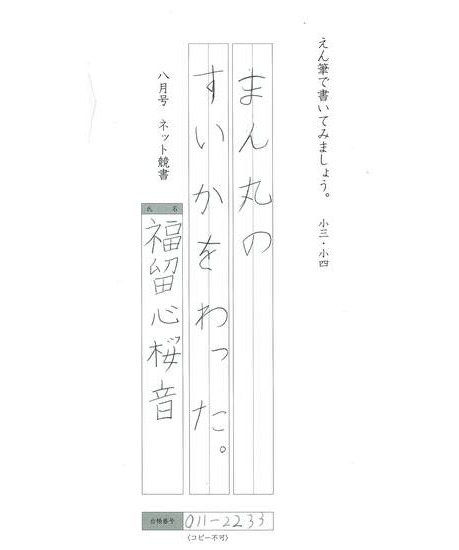 えん筆で書いてみましょう。 小三・小四
まん丸の
すいかをわった。
八月号 ネット競書
氏 名
福留心桜音
会員番号 011-2233
〈コピー不可〉